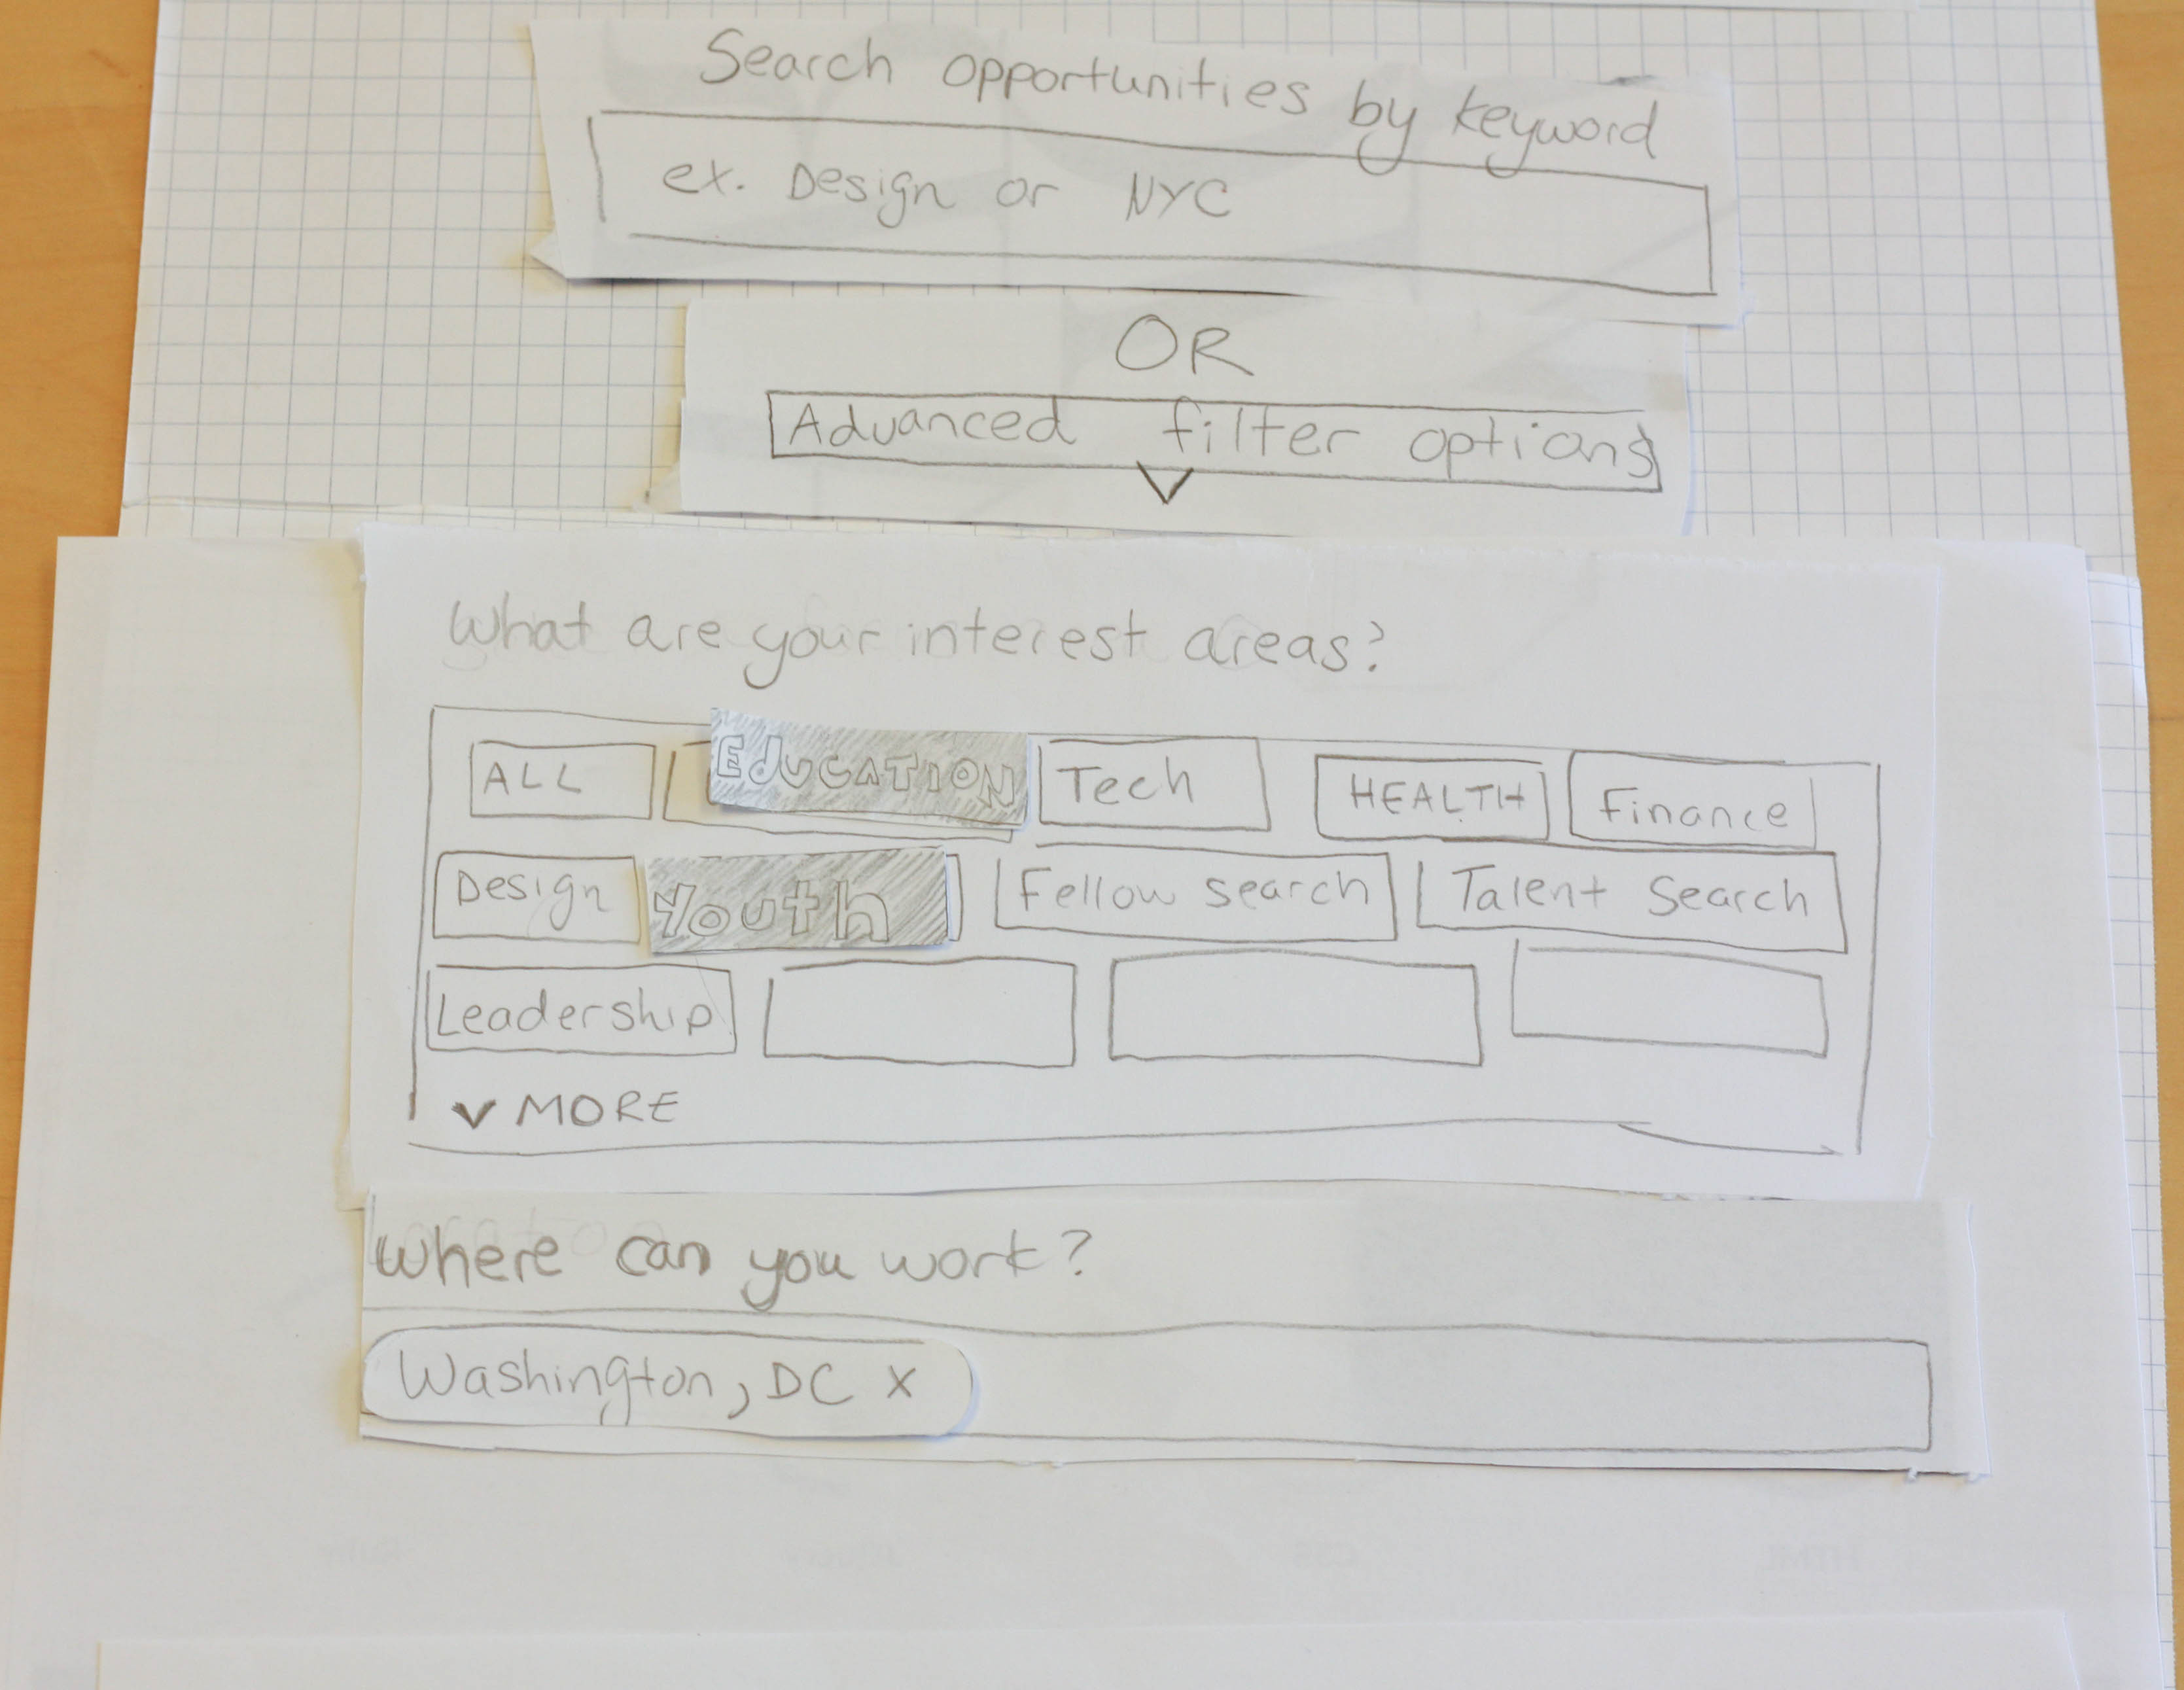 Search opportunities by keyword
ex. Design or NYC
OR
Advanced filter options
What are your interest areas?
ALL EDUCATION Tech HEALTH Finance
Design Youth Fellow search Talent Search
Leadership
v MORE
Where can you work?
Washington, DC x
HTML